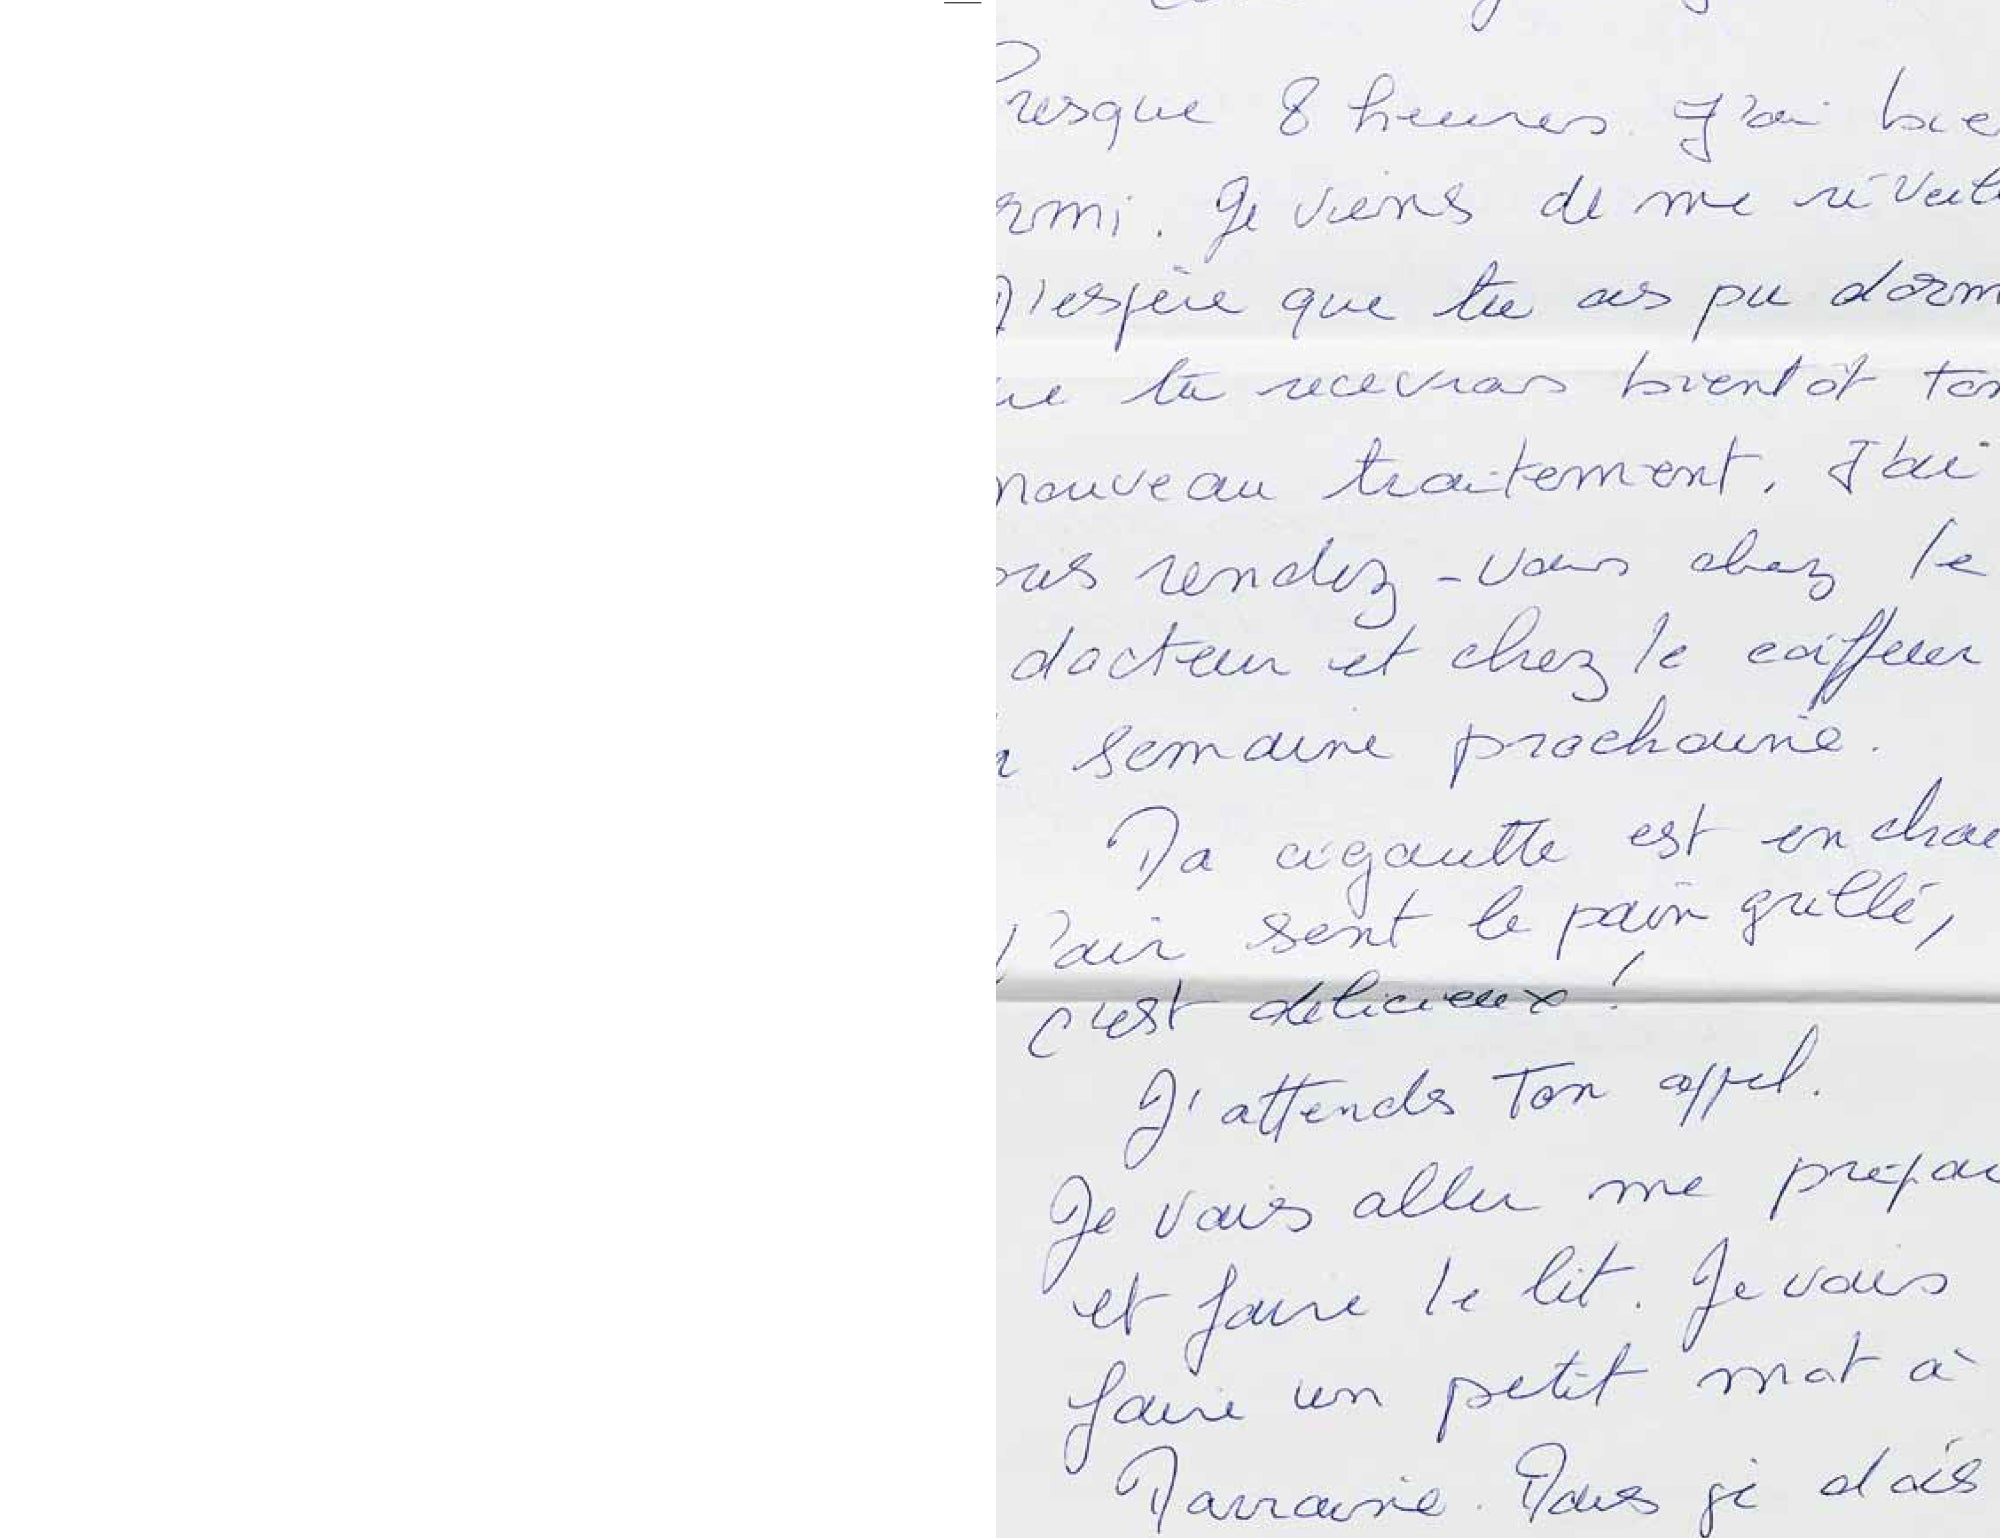 Presque 8 heures. J'ai bie
rmi. Je viens de me réveill
J'espère que tu as pu dorm
ue tu recevras bientôt ton
nouveau traitement. J'ai
rendez-vous chez le
docteur et chez le coiffeur
semaine prochaine.
est en
l'air sent le pain grillé,
c'est délicieux !
J'attends ton appel.
Je vais aller me prépar
et faire le lit. Je vais
faire un petit mot à
je dois